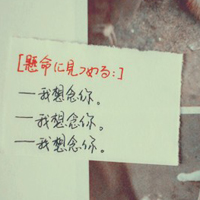 [懸命に見つめる:]
一我想念你。
一我想念你。
一我想念你。